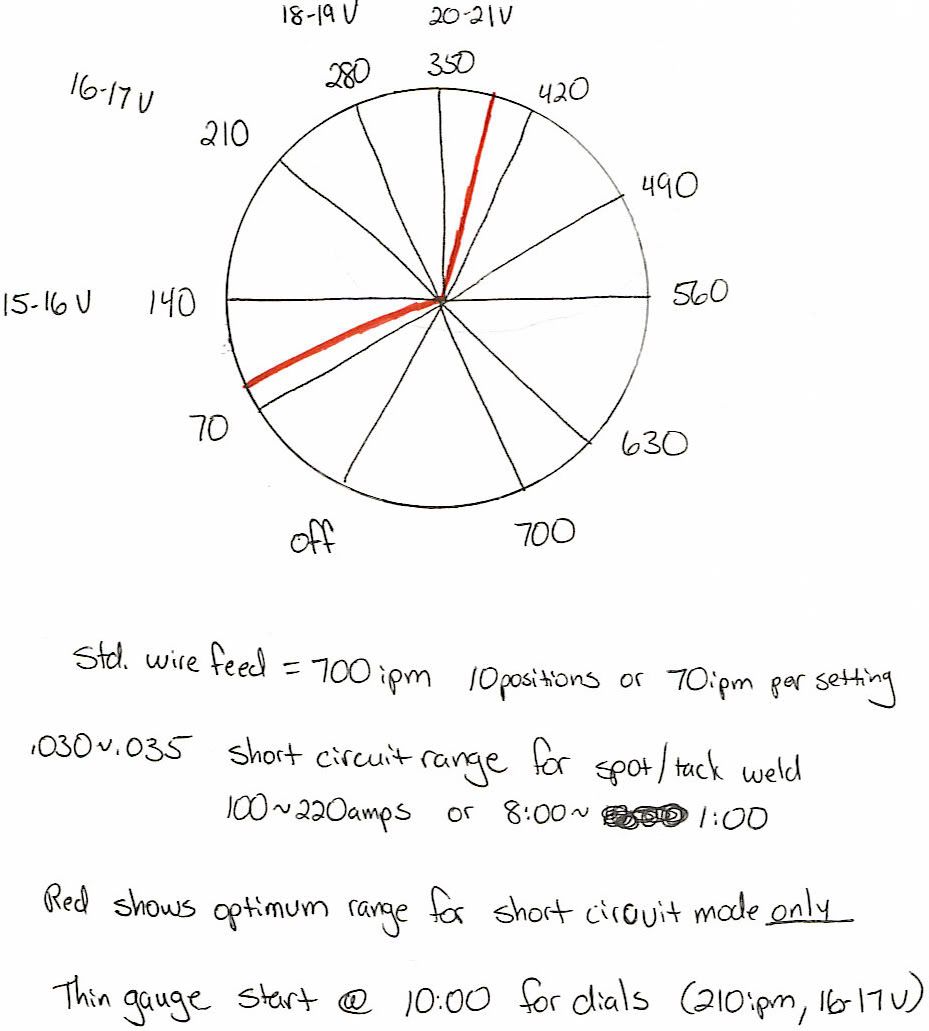 18-19 V 20-21 V
280 350 420
16-17 V
210
490
15-16 V 140 560
70
630
off 700
Std. wire feed = 700 ipm 10 positions or 70 ipm per setting
.030 ~ .035 short circuit range for spot/tack weld
100 ~ 220 amps or 8:00 ~ 1:00
Red shows optimum range for short circuit mode only
Thin gauge start @ 10:00 for dials (210 ipm, 16-17 V)